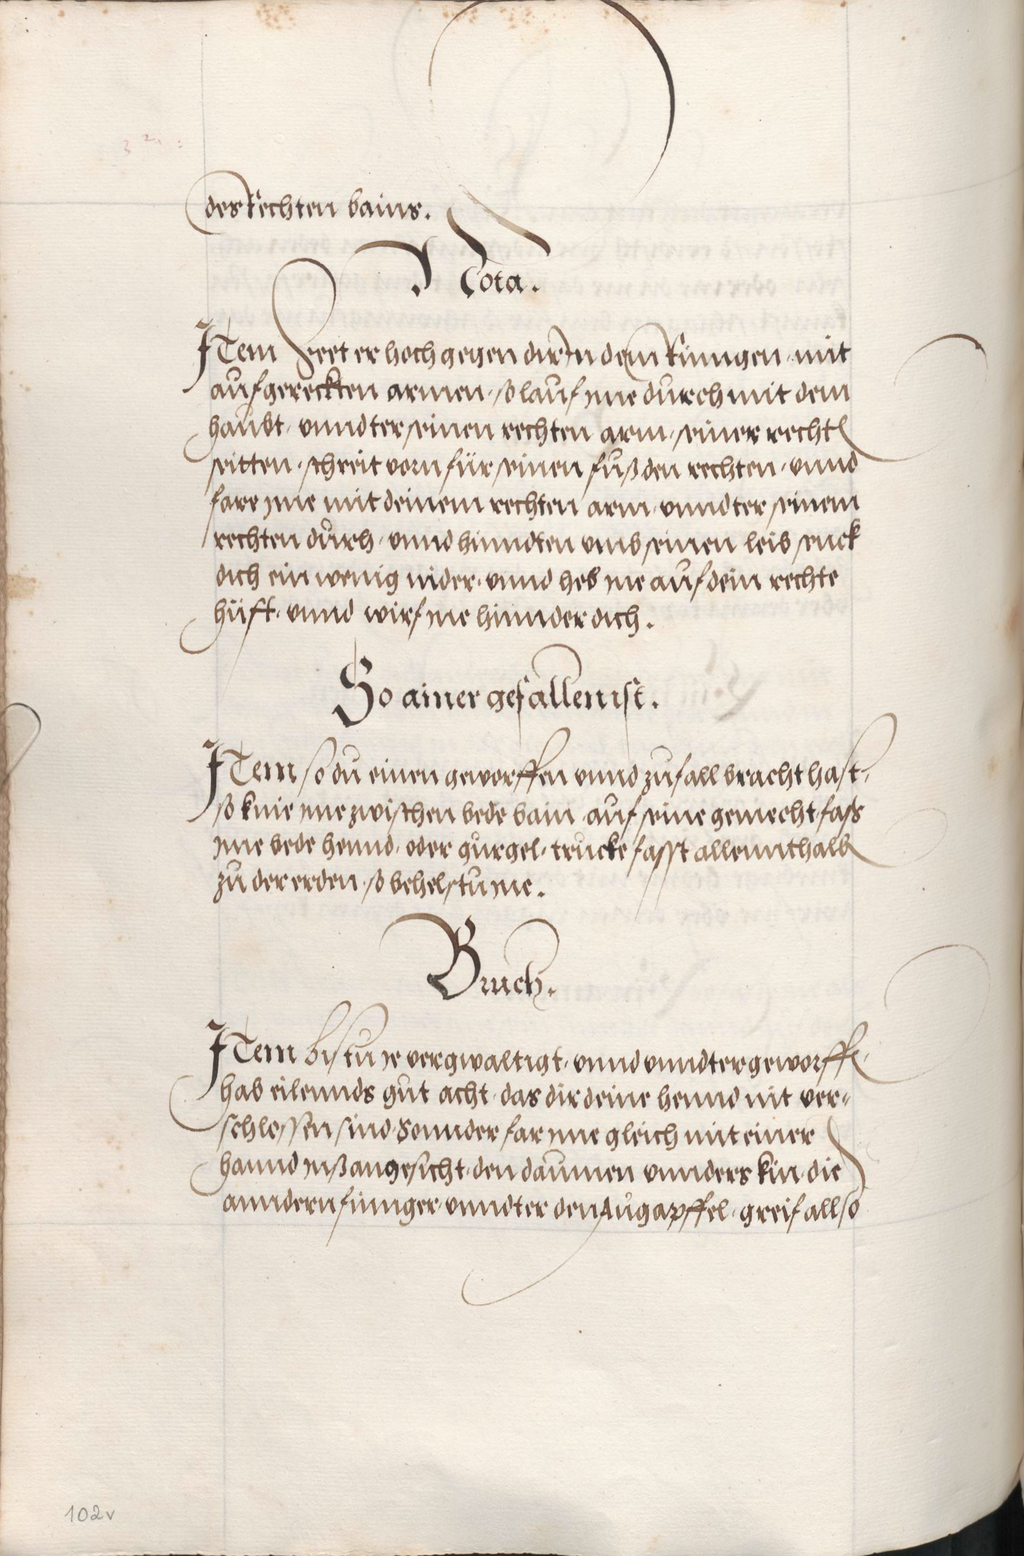 des Rechten bains.
Nota.
Item Feert er hoch gegen dir In dem Ringen mit
aufgereckten armen, so lauf ime durch mit dem
haubt, unndter seinen rechten arm, seiner recht
seitten, schreit vorn für seinen fuß den rechten, unnd
fare ime mit deinem rechten arm, unndter seinem
rechten durch, unnd hinndten umb seinen leib senck
dich ein wenig nider, unnd heb ine auf dein rechte
hüft, unnd wirf ine hinnder dich.
So ainer gefallen ist.
Item so du einen geworffen unnd zu fall bracht hast,
so knie ime zwischen bede bain auf seine gemecht fass
ime bede hennd, oder gurgel, trucke fasst allennthalb
zu der erden, so behelstu ine.
Bruch.
Item bistu je vergwaltigt, unnd unndtergeworffe,
hab eilennds gut acht, das dir deine hennd nit ver=
schlossen sind, Sonnder far ime gleich mit einer
hannd inß angesicht, den daumen unnders kin, die
anndern finnger, unndter den Augapffel, greif allso
102v